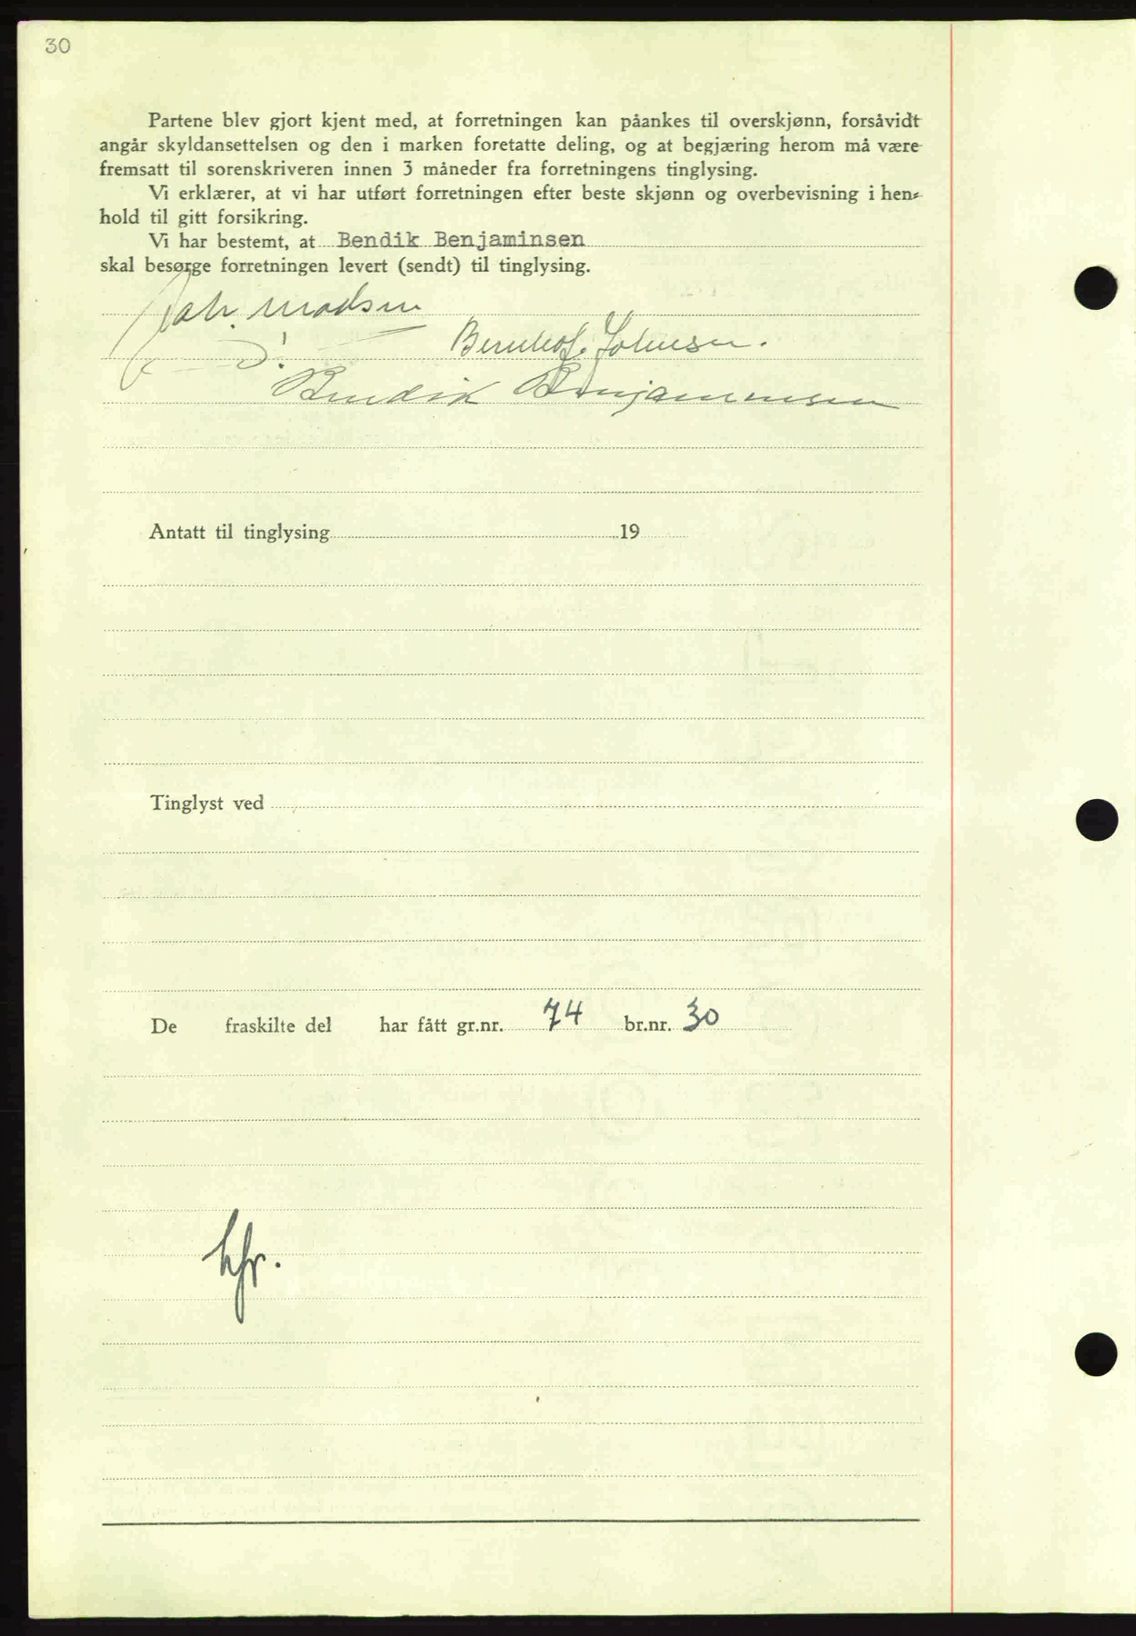 30
Partene blev gjort kjent med, at forretningen kan påankes til overskjønn, forsåvidt
angår skyldansettelsen og den i marken foretatte deling, og at begjæring herom må være
fremsatt til sorenskriveren innen 3 måneder fra forretningens tinglysing.
Vi erklærer, at vi har utført forretningen efter beste skjønn og overbevisning i hen-
hold til gitt forsikring.
Vi har bestemt, at Bendik Benjaminsen
skal besørge forretningen levert (sendt) til tinglysing.
Joh. Madsen
Bernhof. Johnsen.
Bendik Benjaminsen
Antatt til tinglysing 19
Tinglyst ved
De fraskilte del har fått gr.nr. 74 br.nr. 30